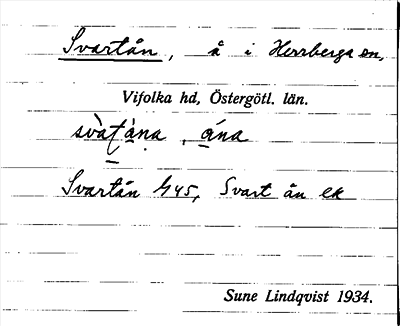 Svartån, å i Herrberga sn,
Vifolka hd, Östergötl. län.
ána
Svartån G45, Svart ån ek
Sune Lindqvist 1934.